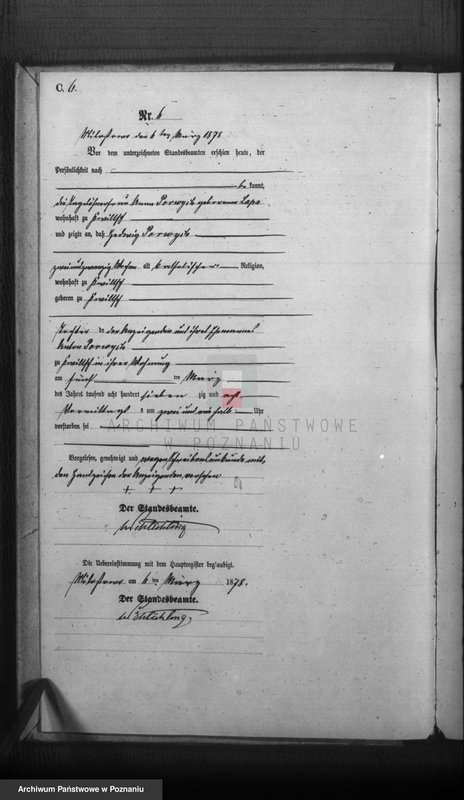 C. 6.
Nr. 6
Milostowo den 6 ten März 1878
Vor dem unterzeichneten Standesbeamten erschien heute, der
Persönlichkeit nach
be kannt,
die Tagelöhnerfrau Anna geborene
wohnhaft zu Kwiltsch
und zeigte an, daß Hedwig
zweiundzwanzig Wochen alt katholischer Religion,
wohnhaft zu Kwiltsch
geboren zu Kwiltsch
Tochter der Anzeigenden und ihres Ehemannes
Anton
zu Kwiltsch in ihrer Wohnung
am fünf ten März
des Jahres tausend acht hundert sieben zig und acht
Vormittags um zwei und ein halb Uhr
verstorben sei
Vorgelesen, genehmigt und wegen Schreibensunkunde mit
den Handzeichen der Anzeigenden versehen
+ + +
Der Standesbeamte.
Die Uebereinstimmung mit dem Hauptregister beglaubigt.
Milostowo am 6 ten März 1878.
Der Standesbeamte.
ARCHIWUM PAŃSTWOWE
W POZNANIU
Archiwum Państwowe w Poznaniu